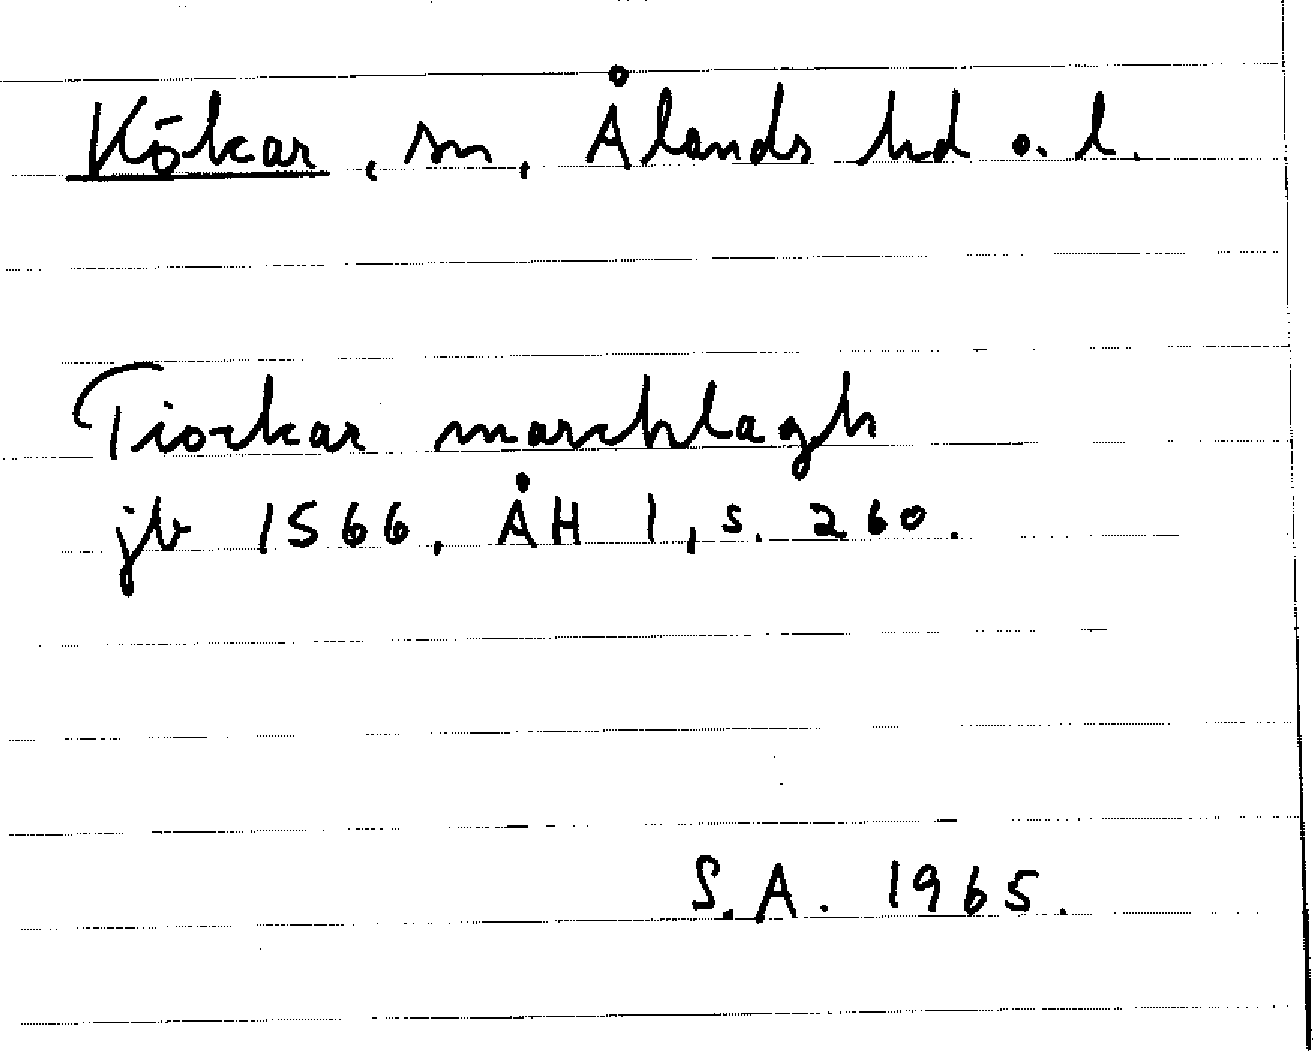 Kökar, sn, Ålands hd o. l.
Tiockar marchlagh
jb 1566, ÅH 1, s. 260.
S.A. 1965.